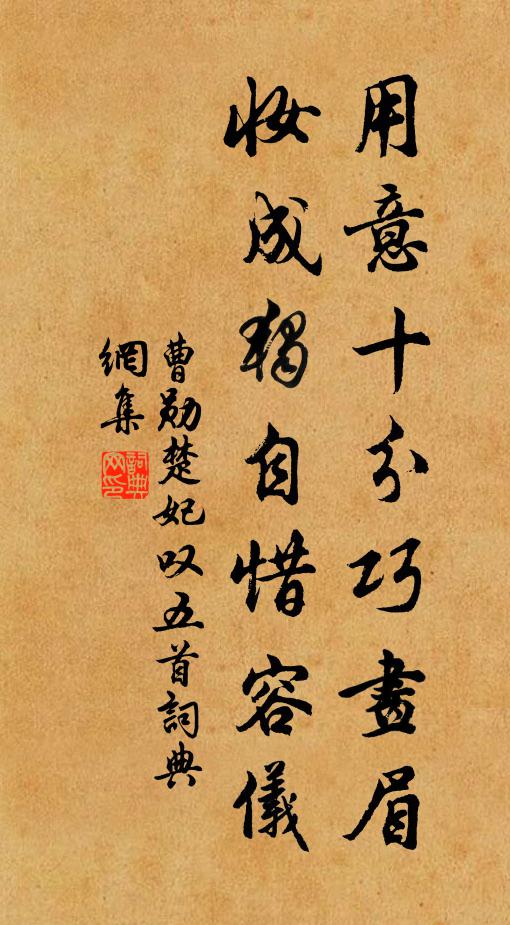 用意十分巧畫眉
妝成獨自惜容儀
曹勛楚妃叹五首詞典
網集
詞典網印